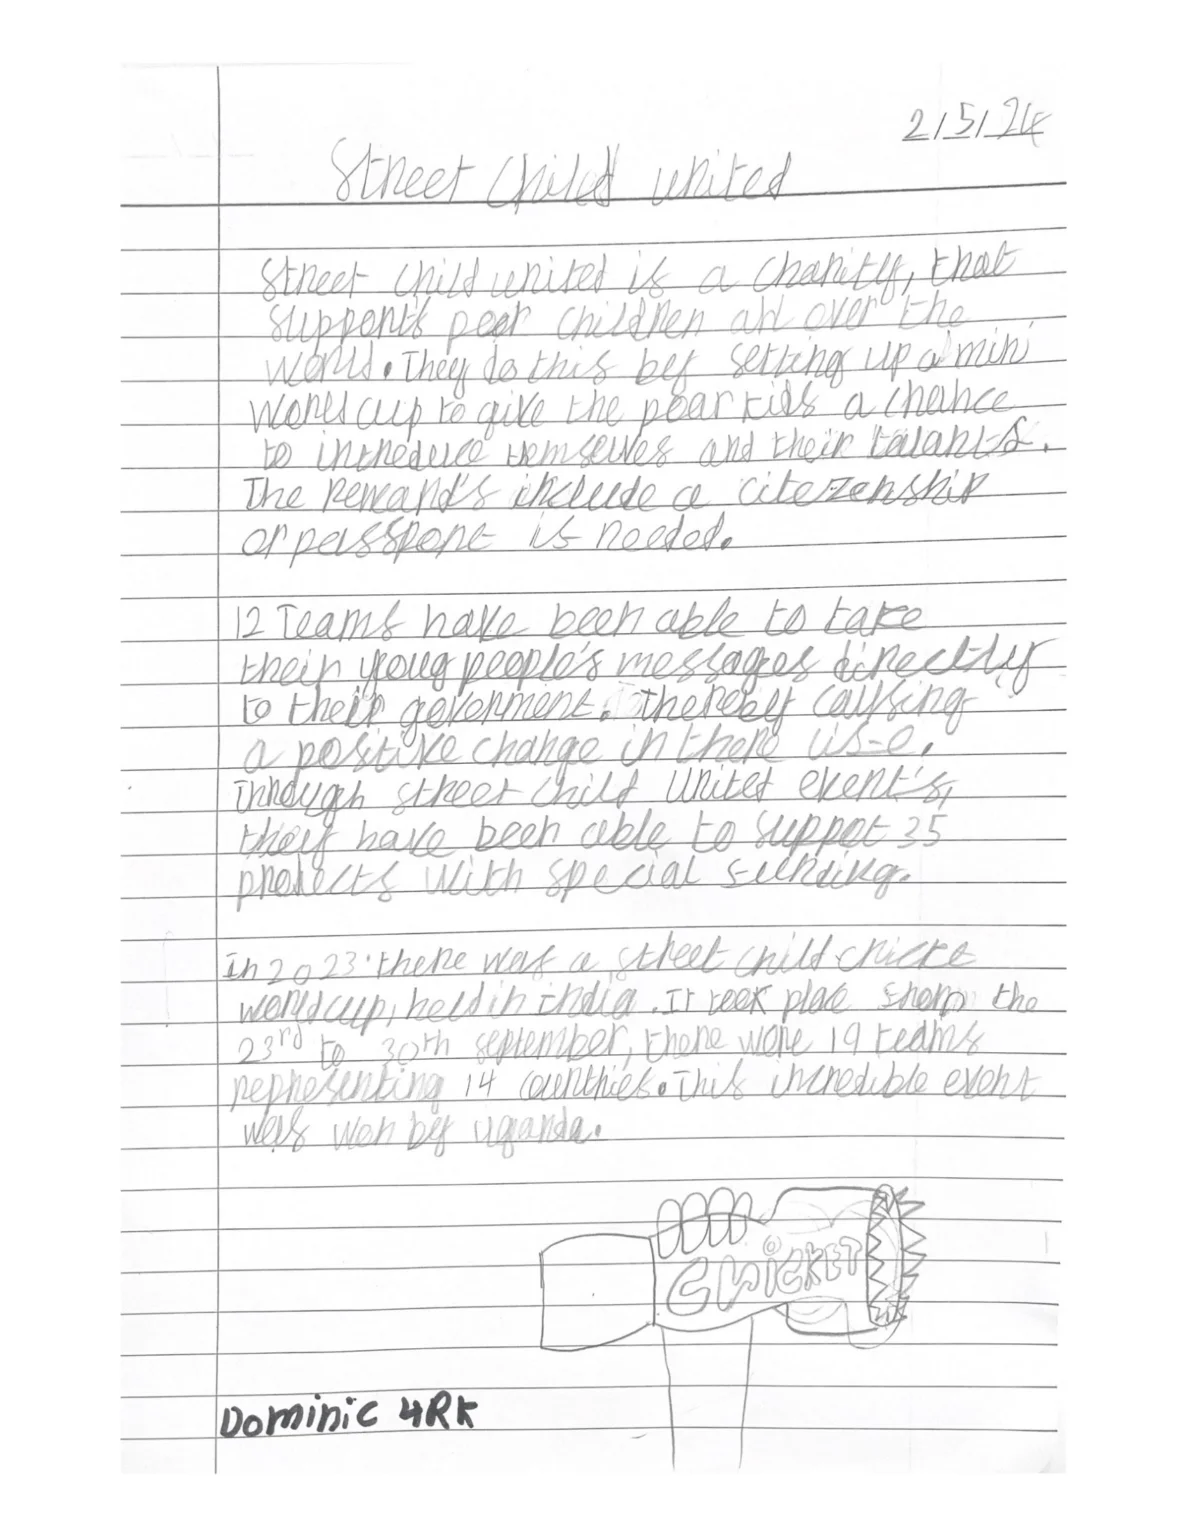 2/5/24
Street Child united
Street child united is a charity, that
support's poor children all over the
world. They do this by setting up a mini
world cup to give the poor kids a chance
to introduce themselves and their talants.
The reward's include a citezenship
or passport is needed.
12 Teams have been able to take
their young people's messages directly
to their goverment. Thereby causing
a positive change in there
Through street child united event's,
they have been able to suppot 35
projects with special funding.
In 2023 there was a street child cricke
world cup, held in india. It took plac the
23rd to 30th september, there were 19 teams
representing 14 countries. This incredible event
was won by uganda.
CRICKET
Dominic 4RK